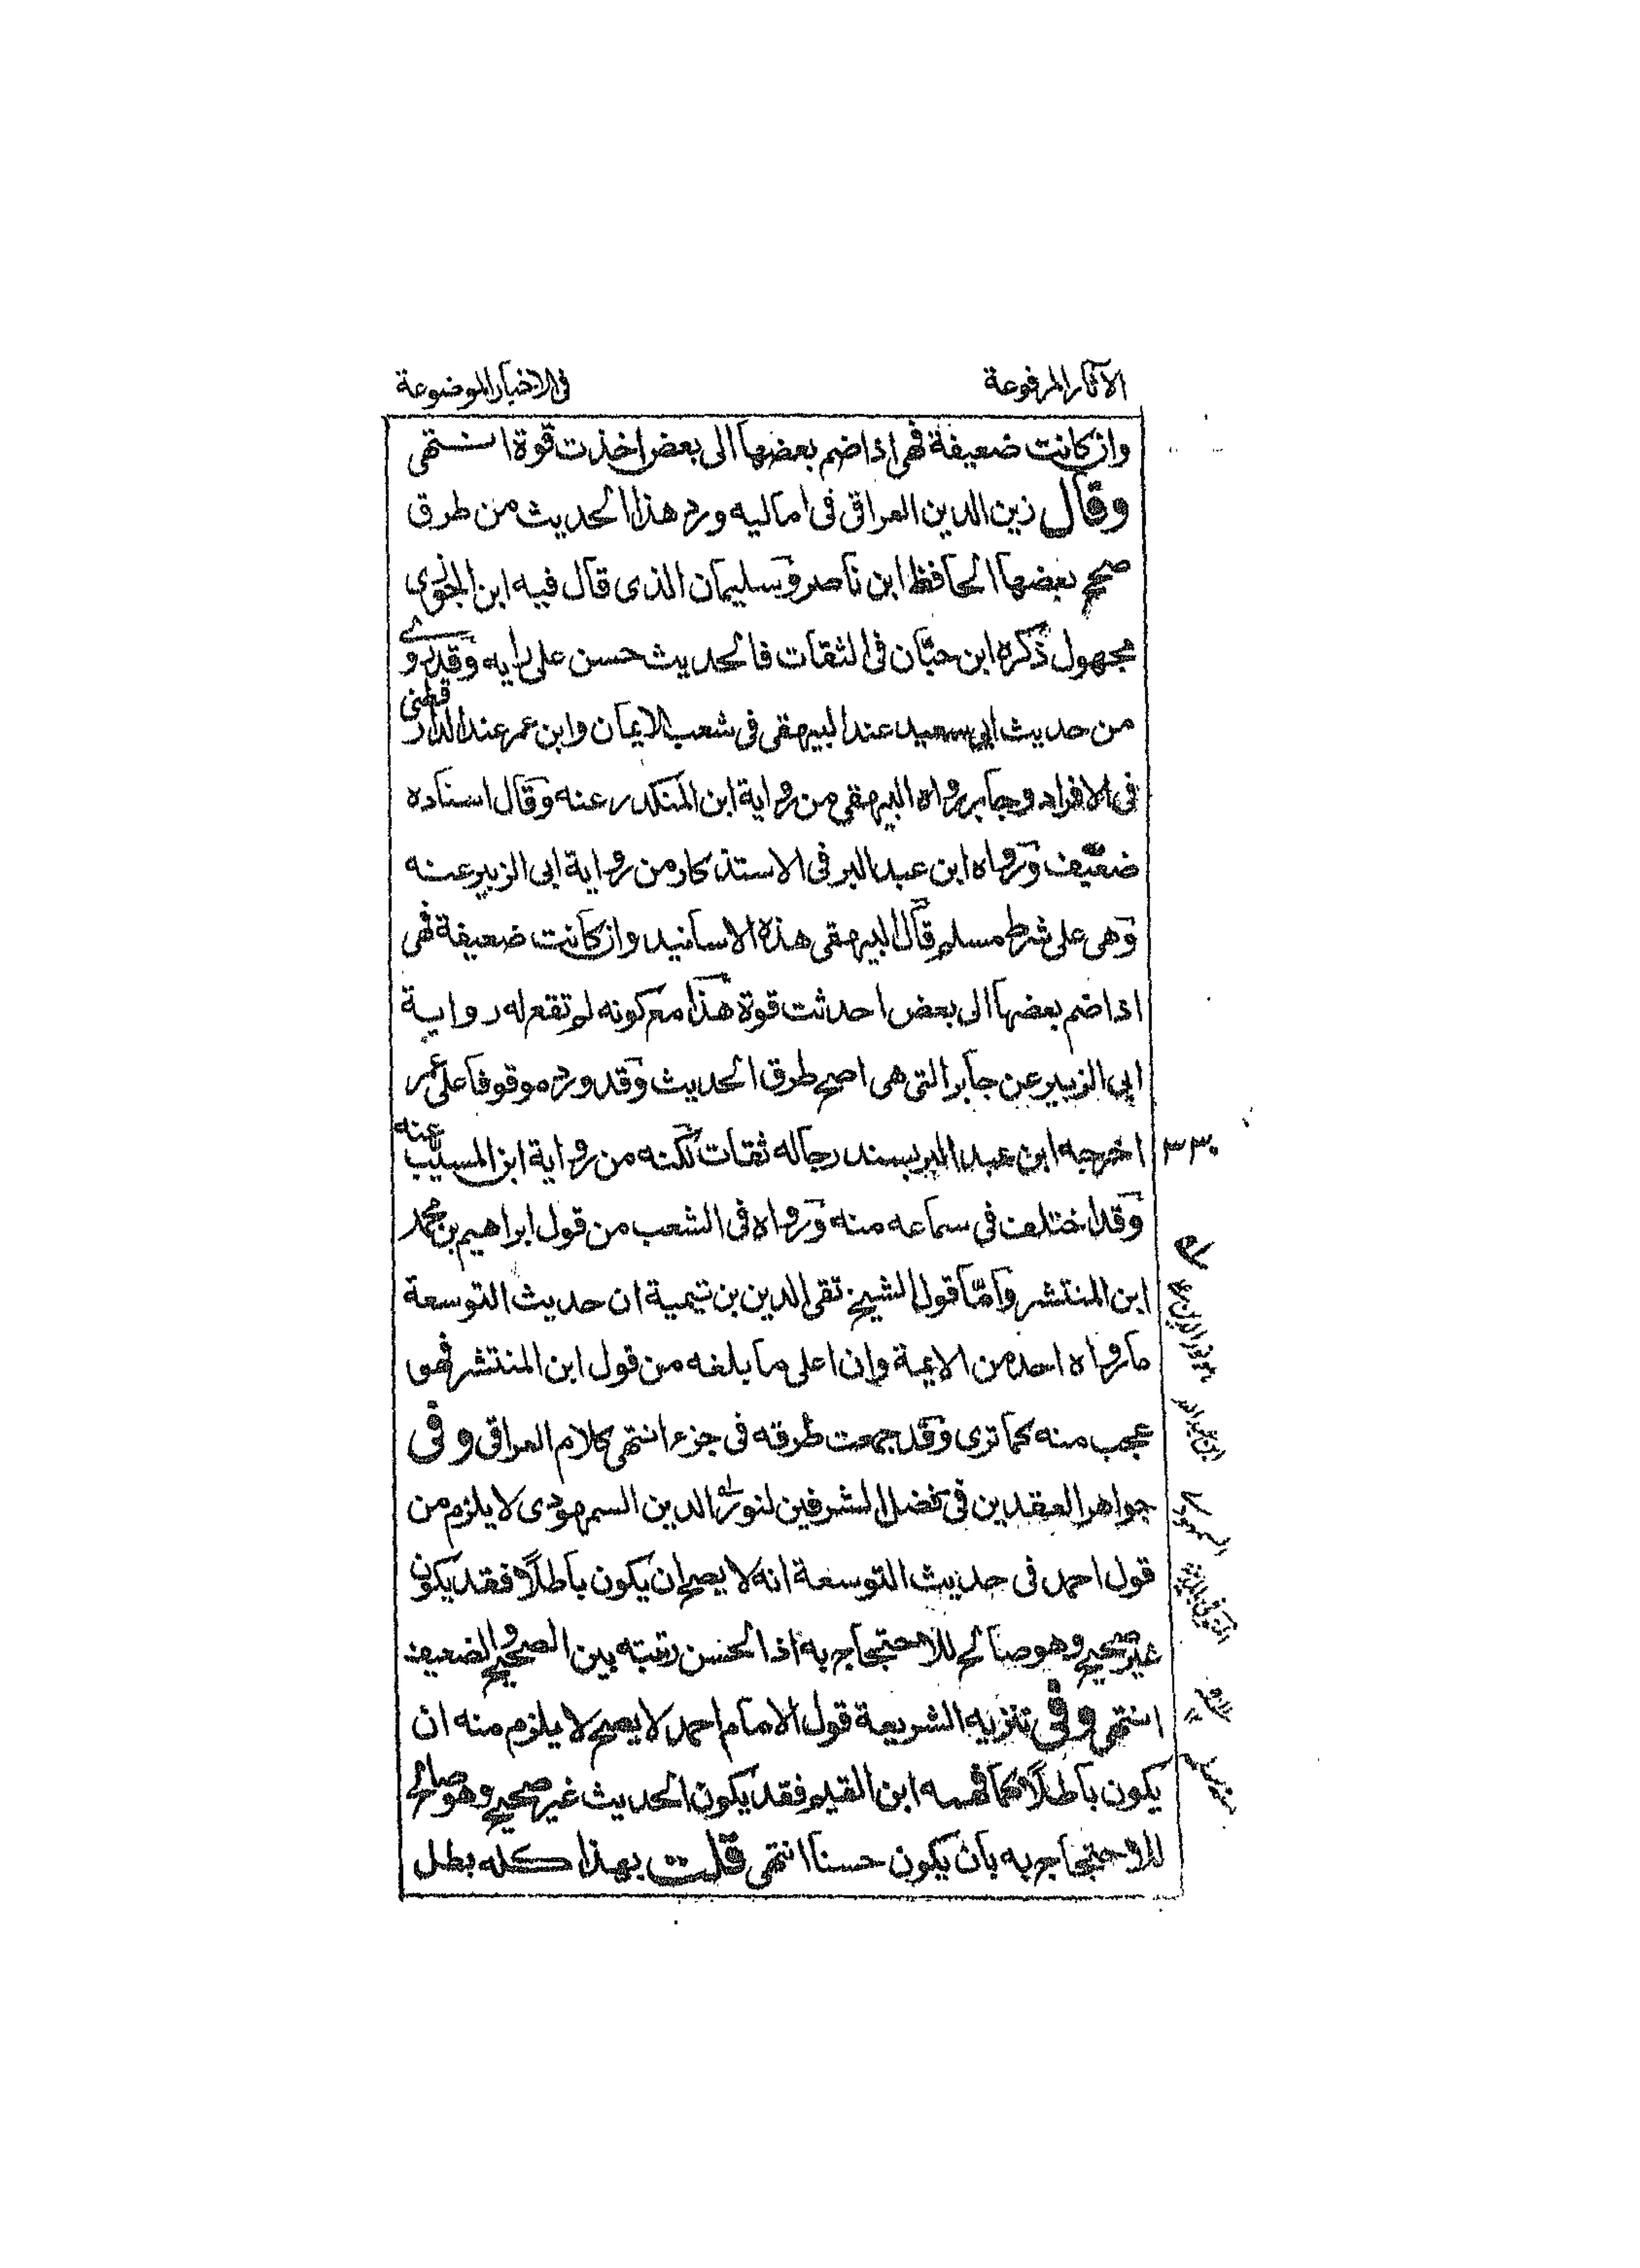 الآثار المرفوعة
فى الاخبار الموضوعة
وان كانت ضعيفة فهى اذا ضم بعضها الى بعض اخذت قوة انتهى
وقال زين الدين العراقى فى اماليه ورد هذا الحديث من طرق
صحح بعضها الحافظ ابن ناصر وسليمان الذى قال فيه ابن الجوزى
مجهول ذكره ابن حبّان فى الثقات فالحديث حسن على رايه وقد روى
من حديث ابى سعيد عند البيهقى فى شعب الايمان وابن عمر عند الدارقطنى
فى الافراد وجابر رواه البيهقى من رواية ابن المنكدر عنه وقال اسناده
ضعيف ورواه ابن عبد البر فى الاستذكار من رواية ابى الزبير عنه
وهى على شرط مسلم قال البيهقى هذه الاسانيد وان كانت ضعيفة فهى
اذا ضم بعضها الى بعض احدثت قوة هذا مع كونه لم تقع له رواية
ابى الزبير عن جابر التى هى اصح طرق الحديث وقد ورد موقوفا على عمر
اخرجه ابن عبد البر بسند رجاله ثقات لكنه من رواية ابن المسيب عنه
٣٣٠
وقد اختلف فى سماعه منه ورواه فى الشعب من قول ابراهيم بن محمد
ابن المنتشر وامّا قول الشيخ تقى الدين بن تيمية ان حديث التوسعة
ما رواه احد من الايمة وان اعلى ما بلغه من قول ابن المنتشر فهو
عجب منه كما ترى وقد جمعت طرقه فى جزء انتهى كلام العراقى وفى
جواهر العقدين فى فضل الشرفين لنور الدين السمهودى لا يلزم من
قول احمد فى حديث التوسعة انه لا يصح ان يكون باطلًا فقد يكون
غير صحيح وهو صالح للاحتجاج به اذ الحسن رتبته بين الصحيح والضعيف
انتهى وفى تنزيه الشريعة قول الامام احمد لا يصح لا يلزم منه ان
يكون باطلًا كما فهمه ابن القيم فقد يكون الحديث غير صحيح وهو صالح
للاحتجاج به بان يكون حسنا انتهى قلت بهذا كله بطل